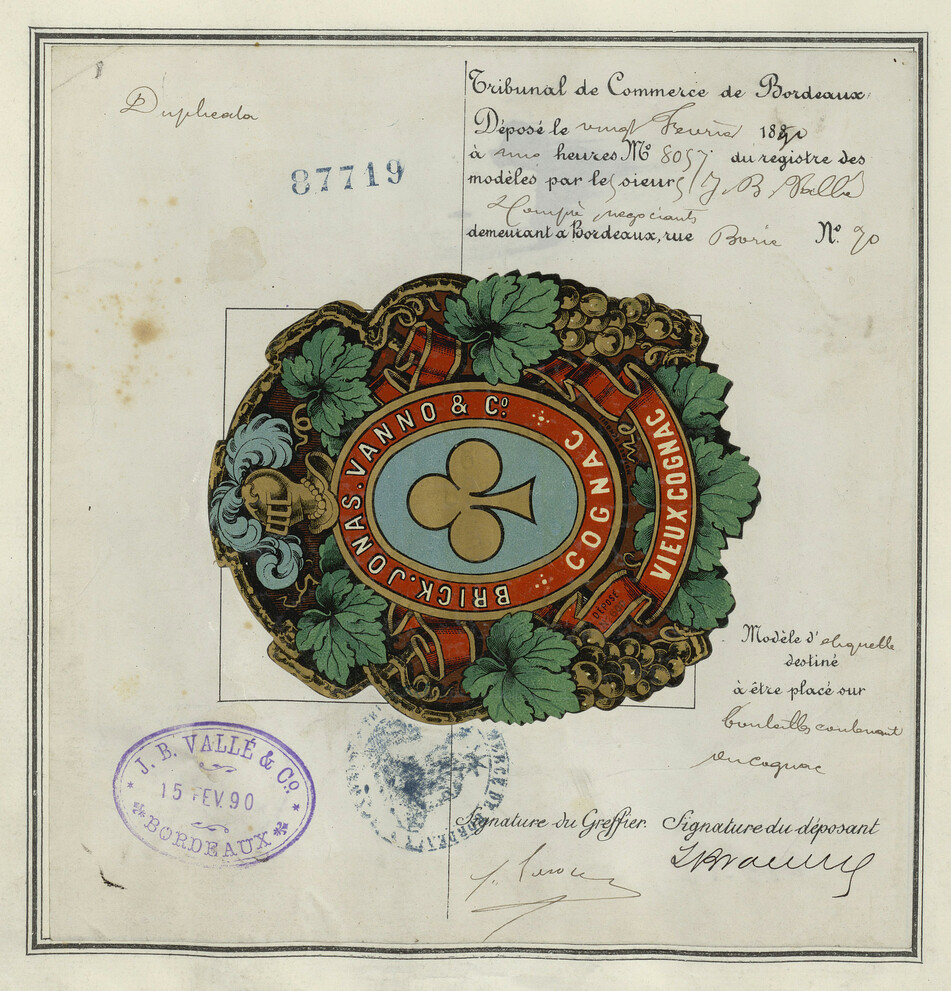 Duplicata
87719
Tribunal de Commerce de Bordeaux
Déposé le vingt Fevrier 1890
à heures No 8057 du registre des
modèles par les sieurs J B Vallé
Compie negociants
demeurant a Bordeaux, rue Borie No. 90
BRICK. JONAS. VANNO & Co.
COGNAC
VIEUX COGNAC
DÉPOSÉ
Modèle d'etiquette
destiné
à être placé sur
bouteilles contenant
du cognac
J. B. VALLÉ & Co.
15 FEV. 90
BORDEAUX
Signature du Greffier. Signature du déposant